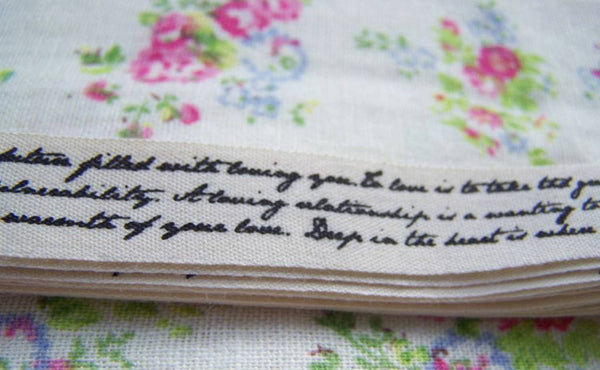 filled with loving you. To love is to take
vulnerability. A loving relationship is a wanting to
warmth of your love. Deep in the heart is where